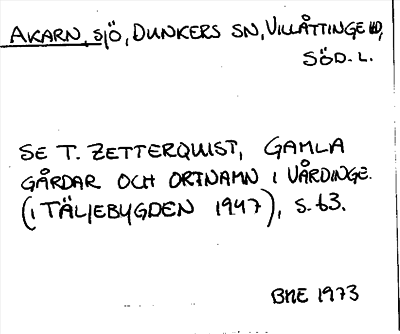 AKARN, sjö, DUNKERS SN, VILLÅTTINGE HD,
SÖD. L.
SE T. ZETTERQUIST, GAMLA
GÅRDAR OCH ORTNAMN I VÅRDINGE.
(I TÄLJEBYGDEN 1947), S. 63.
BNE 1973